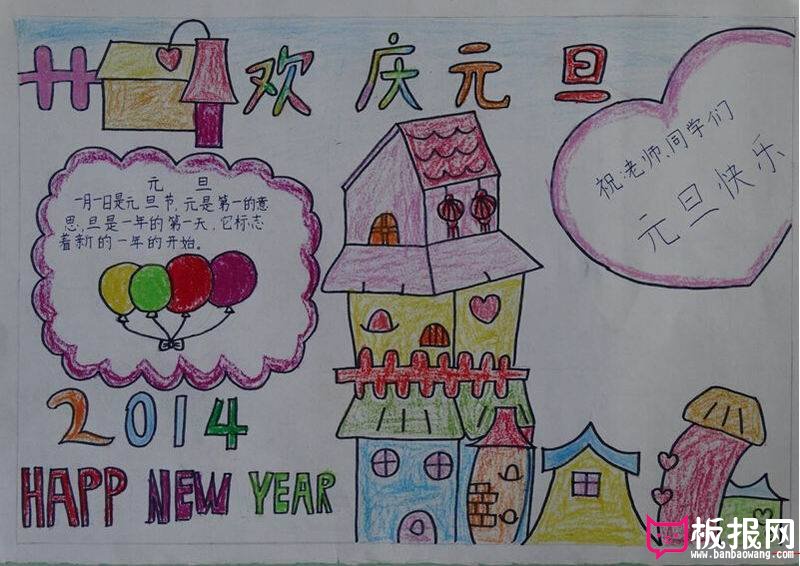 欢庆元旦
祝:老师、同学们
元旦快乐
元旦
一月一日是元旦节,元是第一的意
思,旦是一年的第一天,它标志
着新的一年的开始。
2014
HAPP NEW YEAR
板报网
www.banbaowang.com